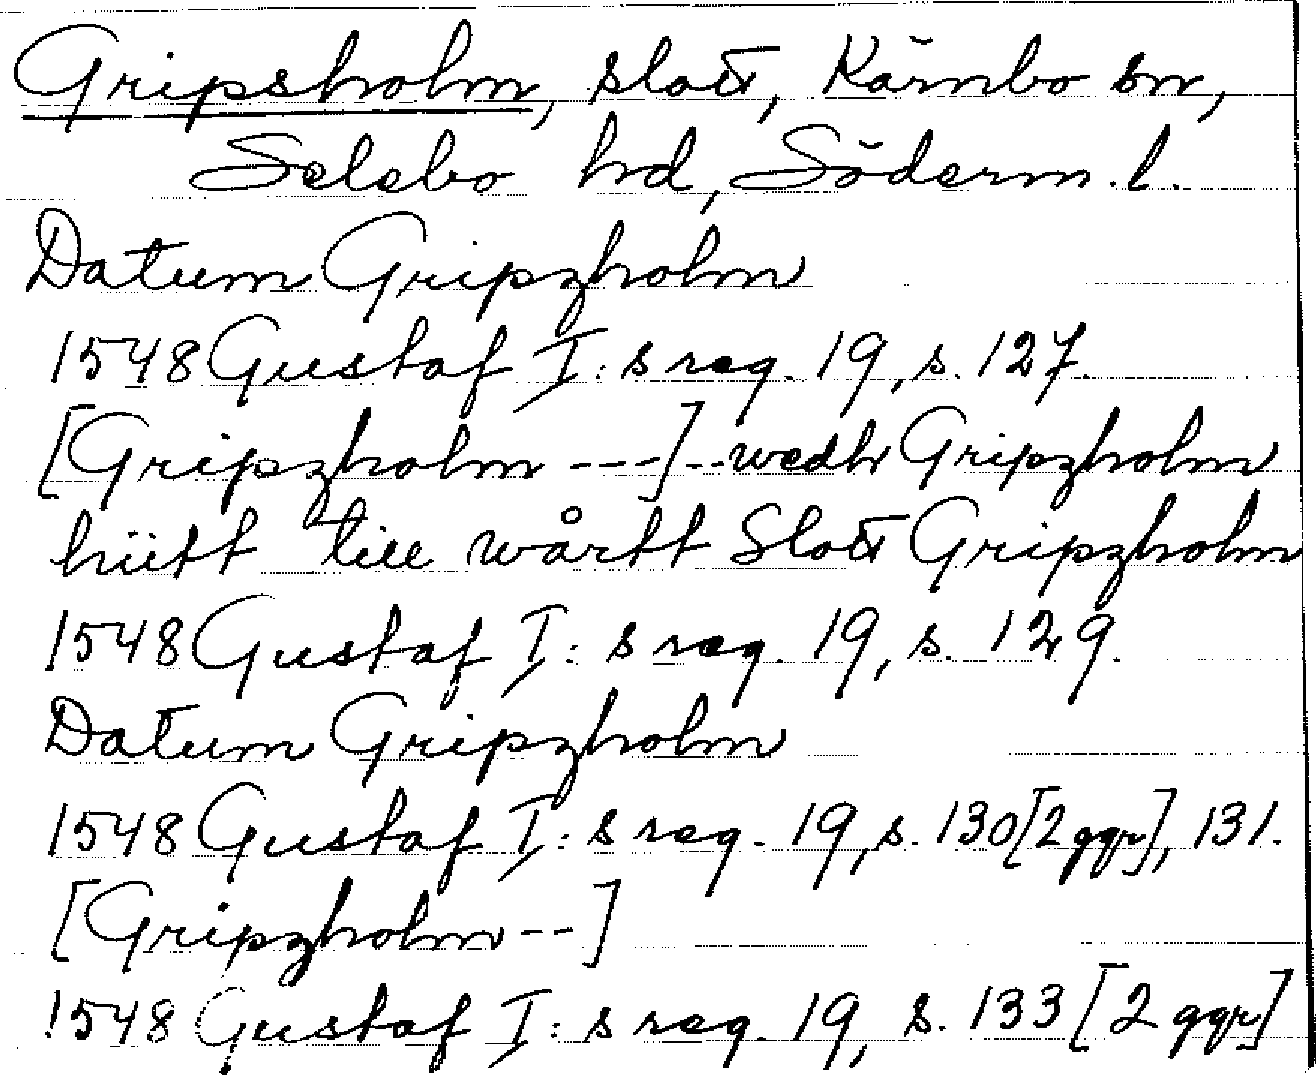 Gripsholm, slott, Kärnbo sn,
Selebo hd, Söderm. l.
Datum Gripzholm
1548 Gustaf I:s reg. 19, s. 127.
[Gripzholm ---]--wedh Gripzholm
hiitt till wårtt Slott Gripzholm
1548 Gustaf I:s reg. 19, s. 129.
Datum Gripzholm
1548 Gustaf I:s reg. 19, s. 130 [2 ggr], 131.
[Gripzholm--]
1548 Gustaf I:s reg. 19, s. 133 [2 ggr]